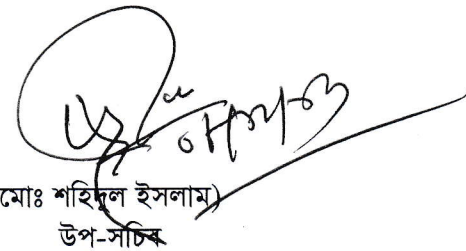 মোঃ শহিদুল ইসলাম)
উপ-সচিব